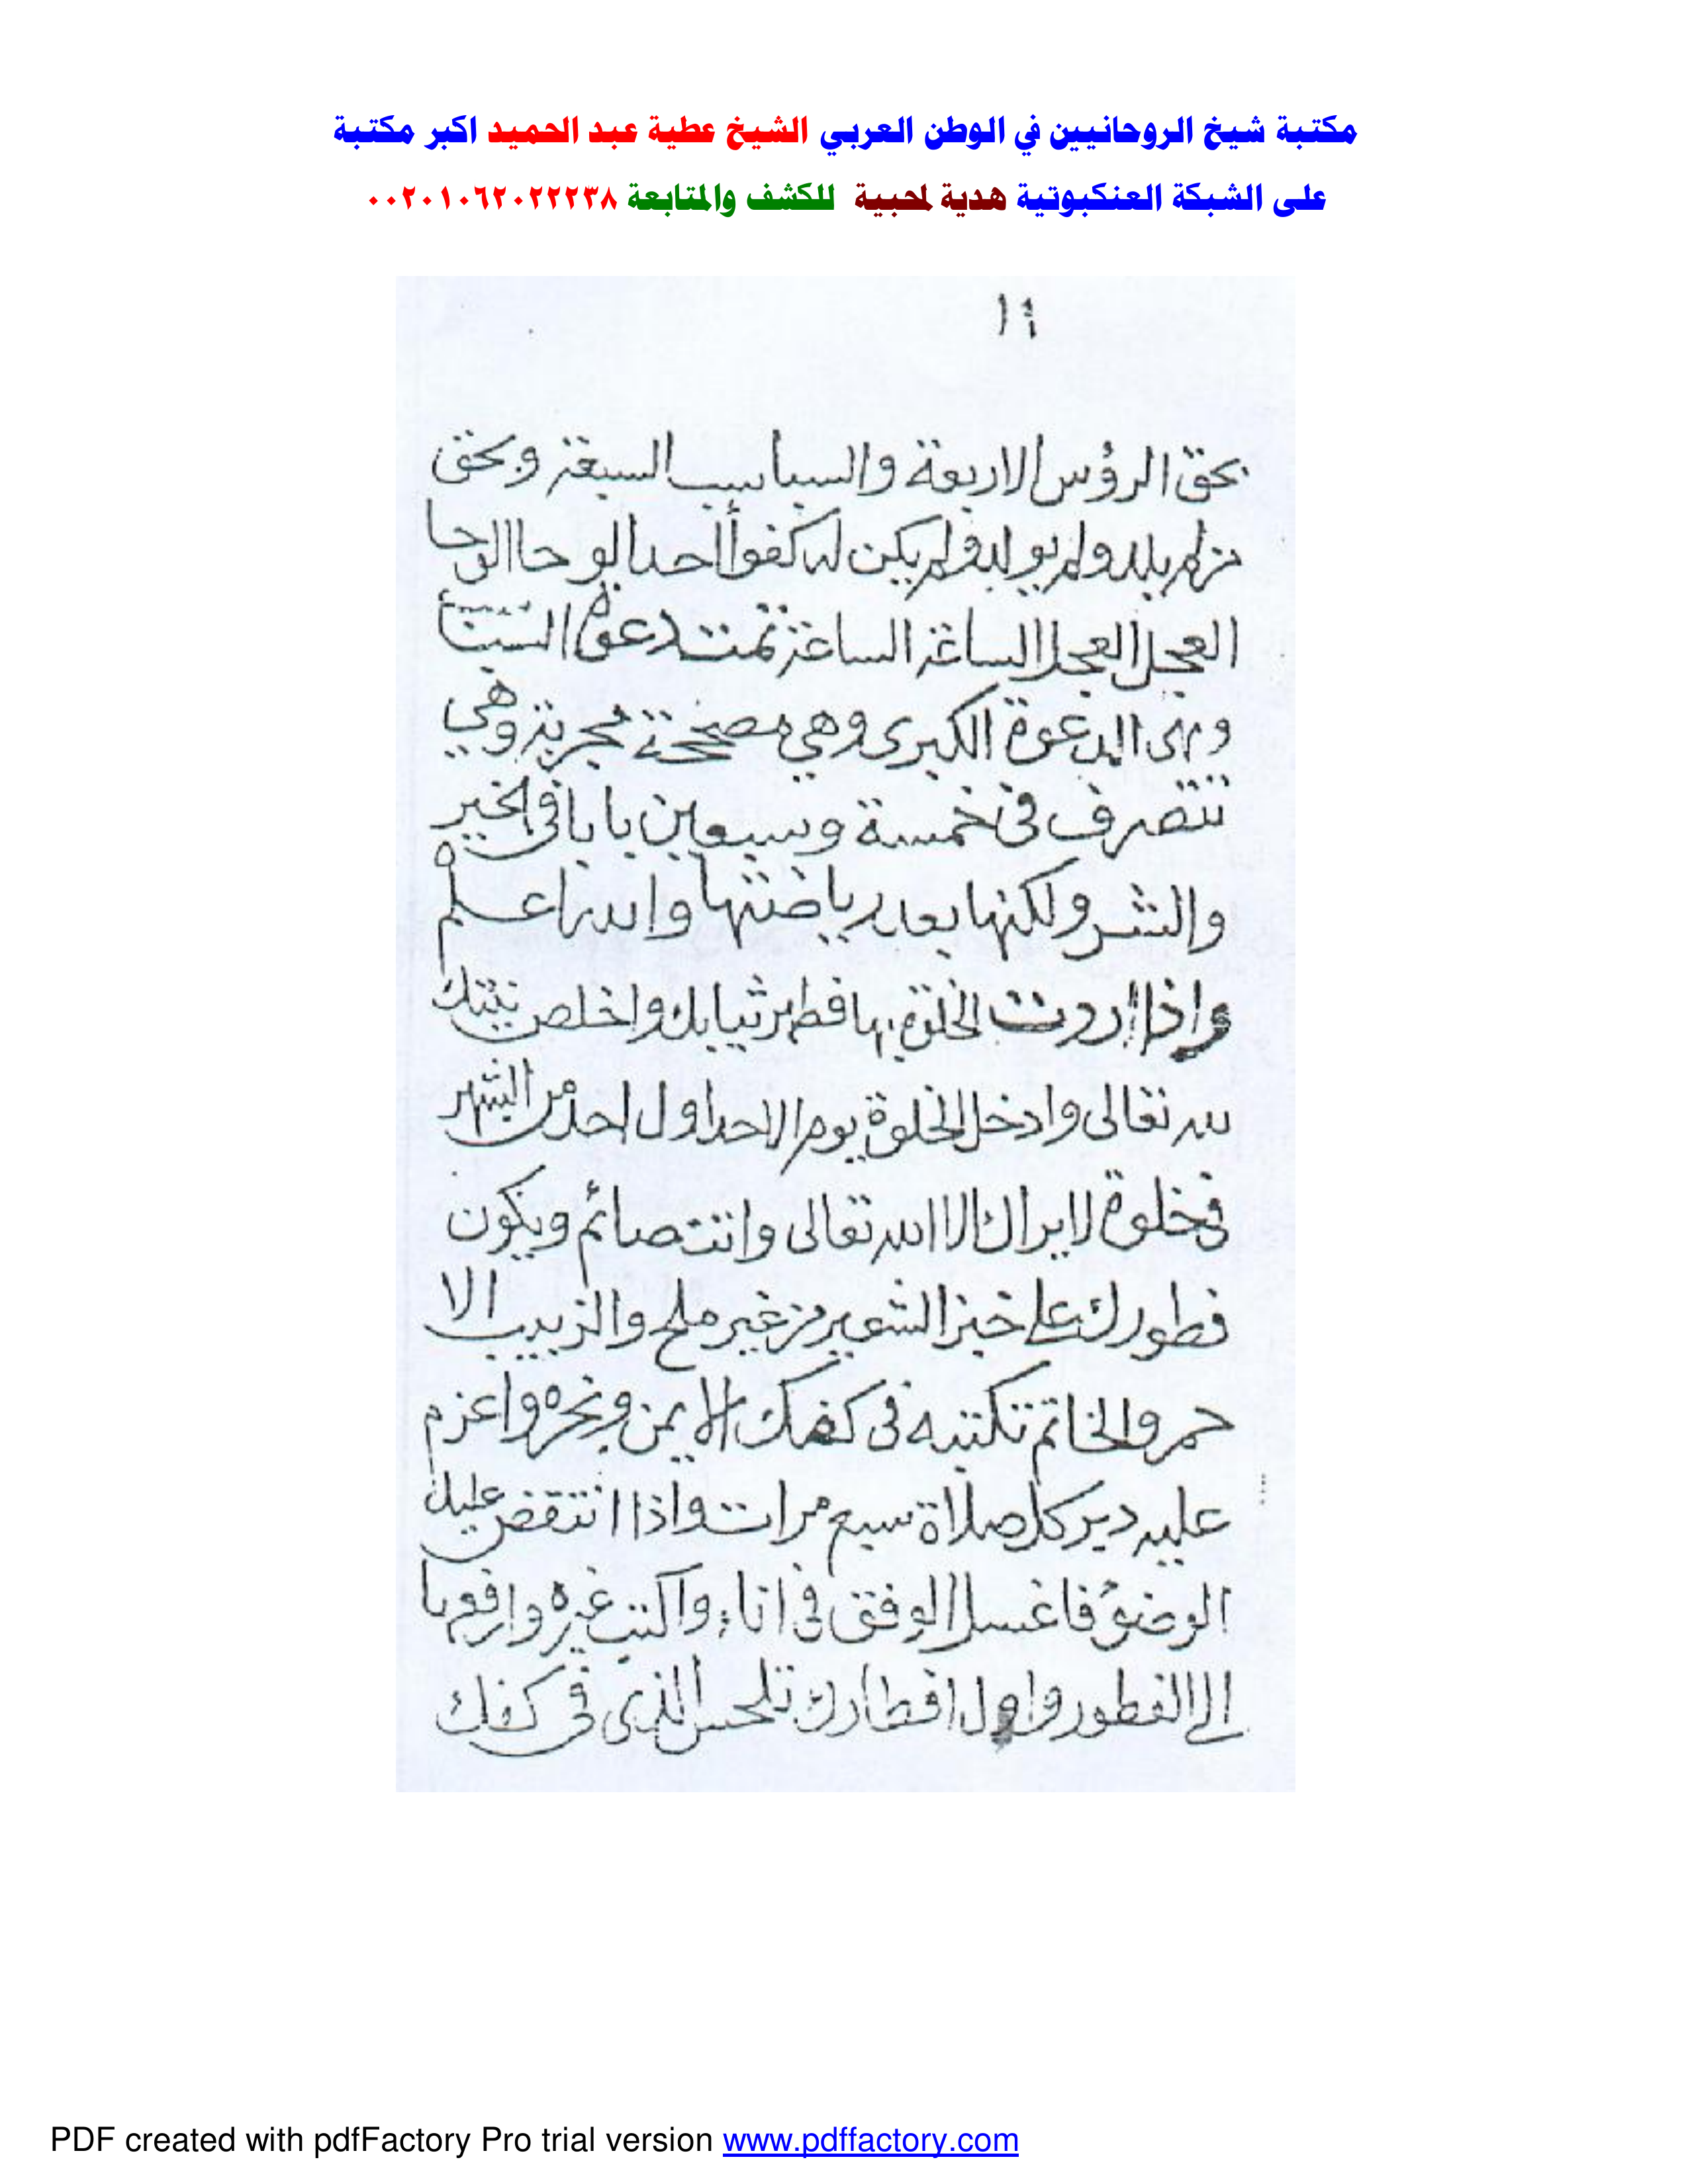 مكتبة شيخ الروحانيين في الوطن العربي الشيخ عطية عبد الحميد اكبر مكتبة
على الشبكة العنكبوتية هدية لمحبية للكشف والمتابعة ٠٠٢٠١٠٦٢٠٢٢٢٣٨
بحق الرؤس الاربعة والسباسب السبعة وبحق
من لم يلد ولم يولد ولم يكن له كفوا أحد الوحا الوحا
العجل العجل الساعة الساعة تمت دعوة
وهى الدعوة الكبرى وهي مصححة مجربة وهي
تتصرف فى خمسة وسبعين بابا في الخير
والشر ولكنها بعد رياضتها والله اعلم
واذا اردت الخلوة بها فطهر ثيابك واخلص نيتك
لله تعالى وادخل الخلوة يوم الاحد اول احد من الشهر
فى خلوة لا يراك الا الله تعالى وانت صائم ويكون
فطورك على خبز الشعير من غير ملح والزبيب الا
حمر والخاتم تكتبه فى كفك الايمن وبخره واعزم
عليه دبر كل صلاة سبع مرات واذا انتقض عليك
الوضؤ فاغسل الوفق فى اناء واكتب غيره وارفعها
الى الفطور واول افطارك تلحس الذى فى كفك
PDF created with pdfFactory Pro trial version www.pdffactory.com